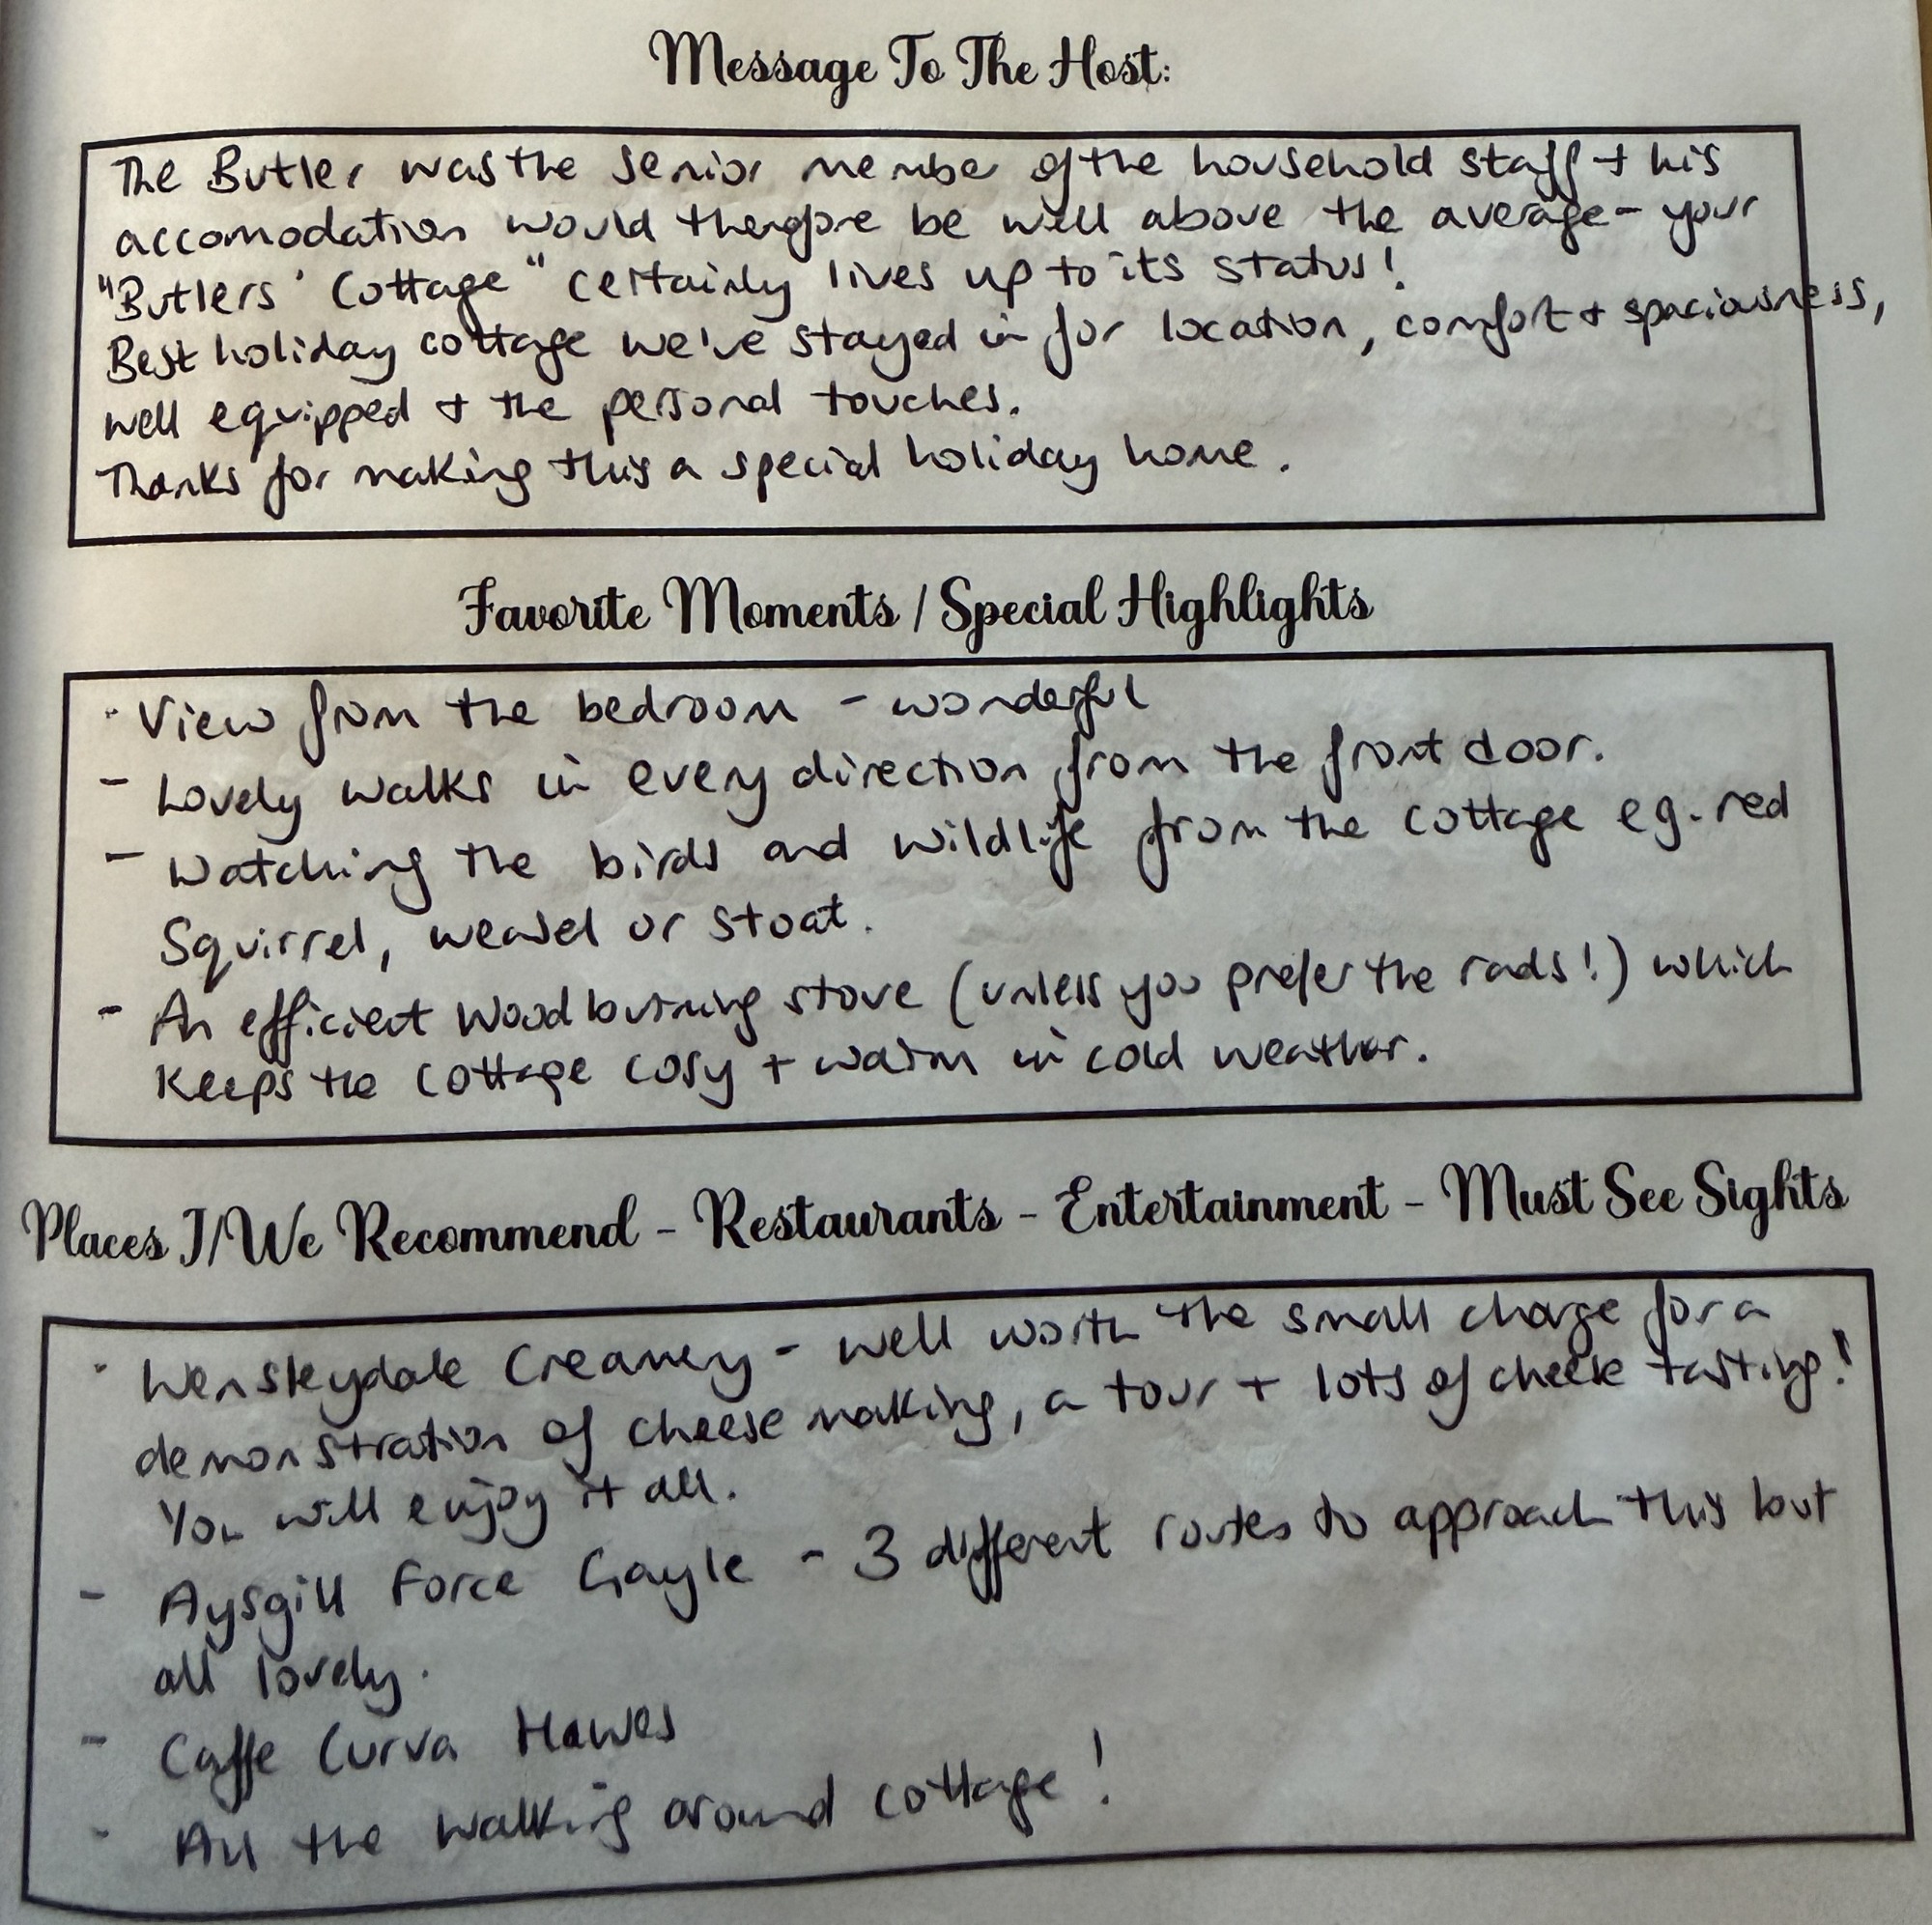 Message To The Host:
The Butler was the senior member of the household staff + his
accomodation would therefore be well above the average - your
"Butlers' Cottage" certainly lives up to its status!
Best holiday cottage we've stayed in for location, comfort + spaciousness,
well equipped + the personal touches.
Thanks for making this a special holiday home.
Favorite Moments / Special Highlights
- View from the bedroom - wonderful
- Lovely walks in every direction from the front door.
- Watching the birds and wildlife from the cottage eg. red
Squirrel, weasel or stoat.
- An efficient wood burning stove (unless you prefer the rads!) which
keeps the cottage cosy + warm in cold weather.
Places I/We Recommend - Restaurants - Entertainment - Must See Sights
- Wensleydale Creamery - well worth the small charge for a
demonstration of cheese making, a tour + lots of cheese tasting!
You will enjoy it all.
- Aysgill Force Gayle - 3 different routes to approach this but
all lovely.
- Caffe Curva Hawes
- All the walking around cottage!